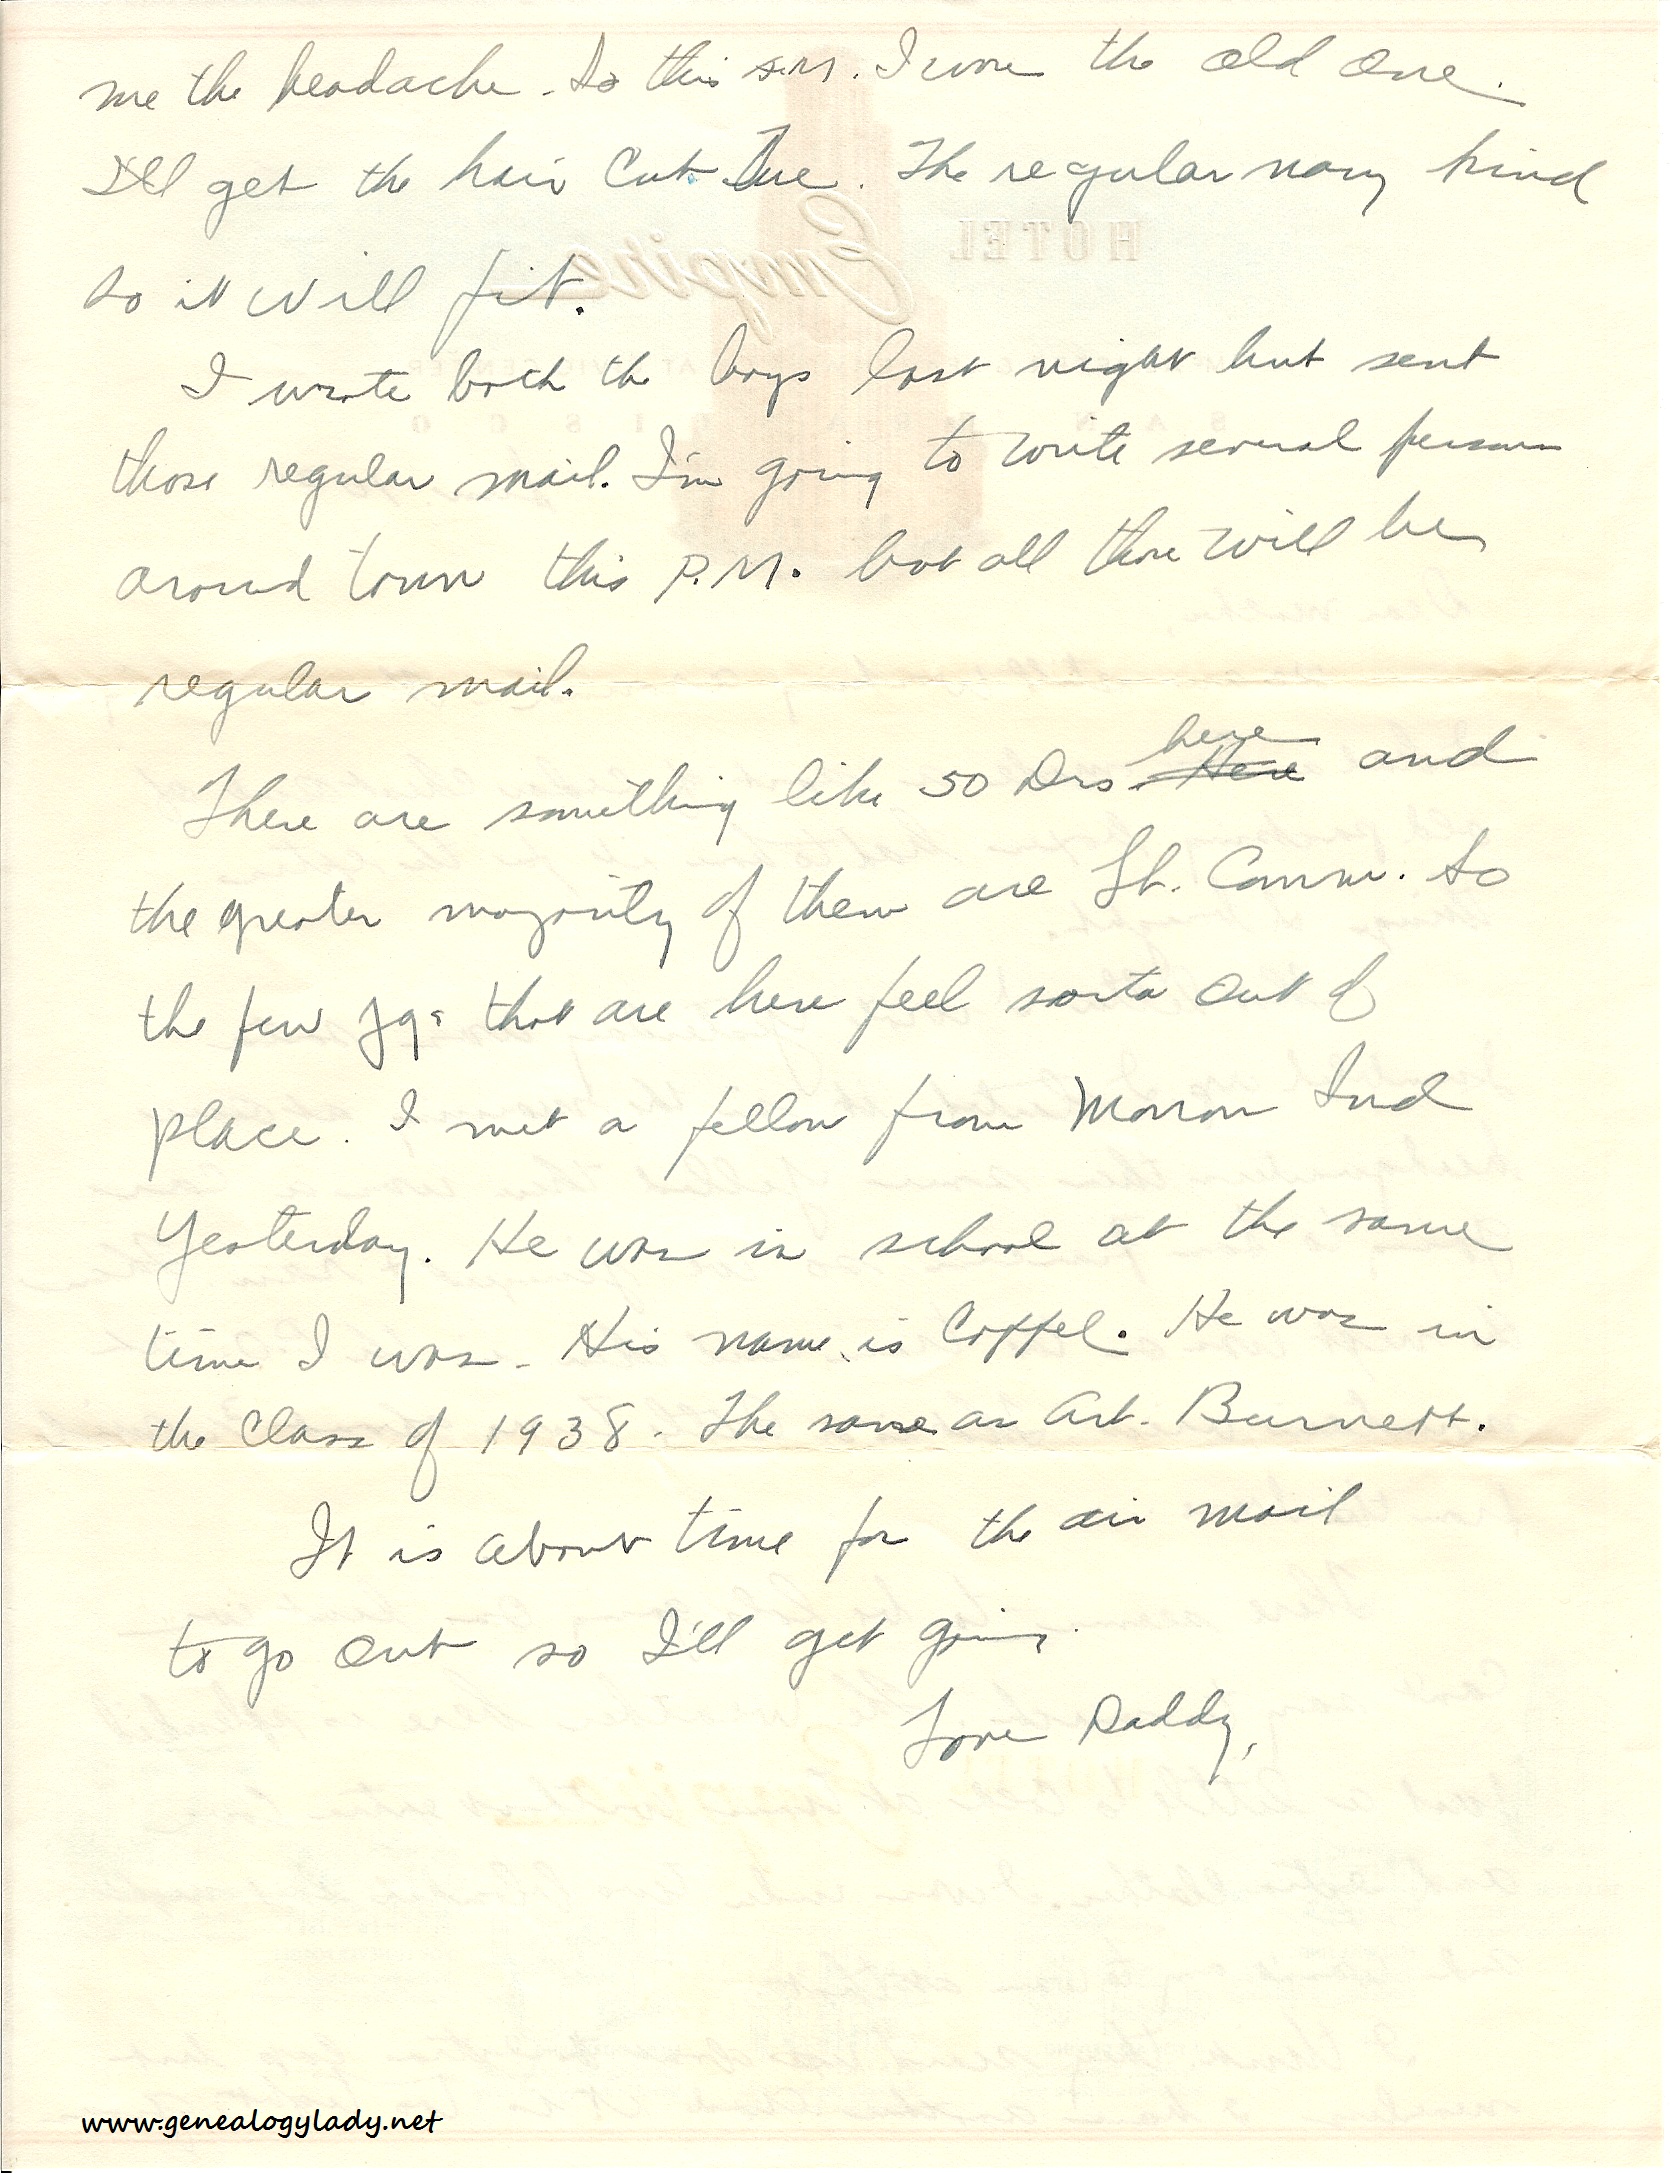 me the headache. So this A.M. I wore the old one.
I'll get the hair cut Tue. The regular navy kind
so it will fit.
I wrote both the boys last night but sent
those regular mail. I'm going to write several persons
around town this P.M. but all those will be
regular mail.
There are something like 50 Drs here and
the greater majority of them are Lt. Comm. So
the few Jgs that are here feel sorta out of
place. I met a fellow from Monon Ind
Yesterday. He was in school at the same
time I was. His name is Coffel. He was in
the Class of 1938. The same as Art. Burnett.
It is about time for the air mail
to go out so I'll get going.
Love Daddy,
HOTEL
Empire
www.genealogylady.net